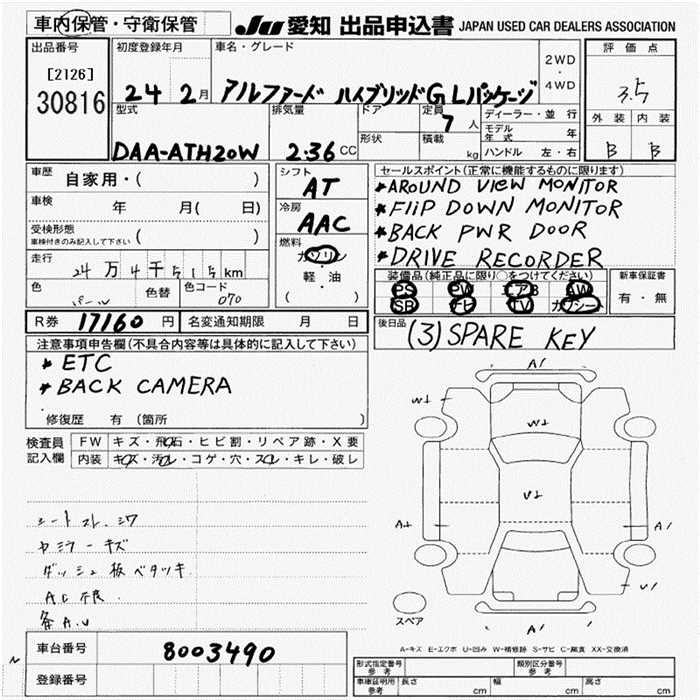 車内保管・守衛保管 JU 愛知 出品申込書 JAPAN USED CAR DEALERS ASSOCIATION
出品番号 初度登録年月 車名・グレード 2WD・4WD 評価点
[2126]
30816 24 2月 アルファード ハイブリッドG Lパッケージ 3.5
型式 排気量 ドア 定員 7人 ディーラー・並行 外装 内装
形状 積載 kg モデル年式 年
DAA-ATH20W 2.36 CC ハンドル 左・右 B B
車歴 自家用・( ) シフト AT セールスポイント(正常に機能するものに限ります)
*AROUND VIEW MONITOR
車検 年 月( 日) 冷房 AAC *FLIP DOWN MONITOR
受検形態 ( ) *BACK PWR DOOR
車検付きのみ記入して下さい 燃料 ガソリン *DRIVE RECORDER
走行 24万4千515km 軽・油 装備品(純正品に限り○をつけてください) 新車保証書
色 パール 色替 色コード 070 ( ) PS PW エアB AW 有・無
SR ナビ TV カワシート
R券 17160円 名変通知期限 月 日 後日品 (3) SPARE KEY
注意事項申告欄(不具合内容等は具体的に記入して下さい)
*ETC
*BACK CAMERA
修復歴 有(箇所 )
検査員 FW キズ・飛石・ヒビ割・リペア跡・X要
記入欄 内装 キズ・汚レ・コゲ・穴・スレ・キレ・破レ
A1
W1
W1
U1
A1 A1
U1
A1
スペア
シートスレ.シワ
ダッシュ板ベタツキ
A.C不良.
A-キズ E-エクボ U-凹み W-補修跡 S-サビ C-腐食 XX-交換済
車台番号 8003490
登録番号
形式指定番号 参考 類別区分番号 参考
車庫証明用 参考 長さ cm 幅 cm 高さ cm